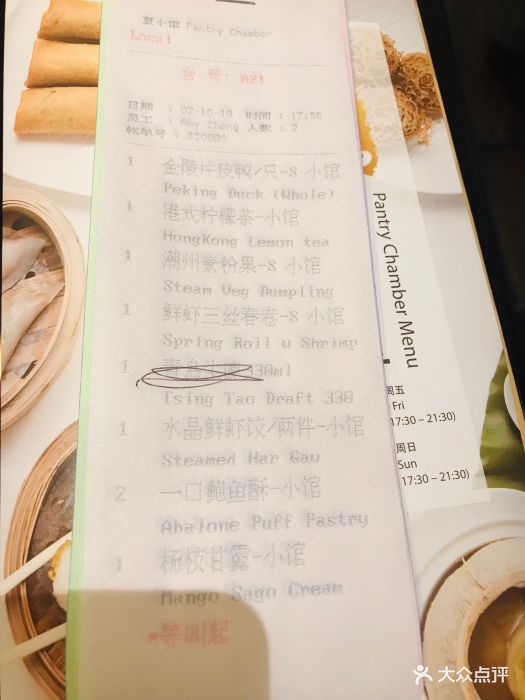 夏小馆 Pantry Chamber
Local
台 号: A21
日期 : 02-10-19 时间 : 17:55
员工 : Amy Zheng 人数 : 2
帐单号 : 330080
1 金陵片皮鸭/只-S 小馆
Peking Duck (Whole)
1 港式柠檬茶-小馆
HongKong Lemon tea
1 潮州素粉果-S 小馆
Steam Veg Dumpling
1 鲜虾三丝春卷-S 小馆
Spring Roll w Shrimp
1 330ml
Tsing Tao Draft 330
1 水晶鲜虾饺/两件-小馆
Steamed Har Gaw
2 一口鲍鱼酥-小馆
Abalone Puff Pastry
1 杨枝甘露-小馆
Mango Sago Cream
*等叫起
Pantry Chamber Menu
周五
Fri
17:30 – 21:30)
周日
Sun
17:30 – 21:30)
大众点评